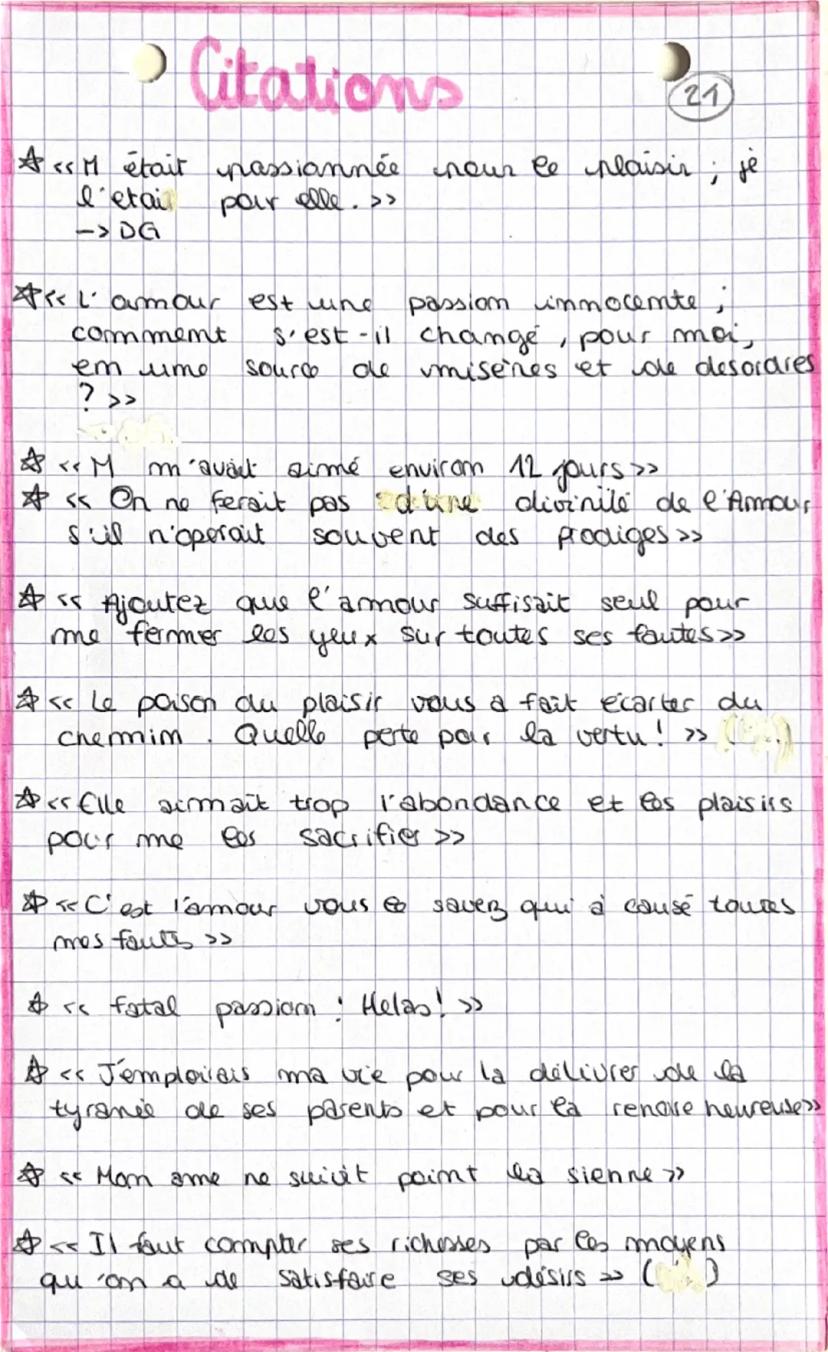 Citations
21
☆ << M était passionnée pour le plaisir ; je
l'etait pour elle. >>
-> DG
☆ << L'amour est une passion innocente ;
comment s'est-il changé, pour moi,
en une source de misères et de desordres
? >>
☆ << M m'avait aimé environ 12 jours >>
☆ << On ne ferait pas d'une divinité de l'Amour
s'il n'operait souvent des prodiges >>
☆ << Ajoutez que l'amour suffisait seul pour
me fermer les yeux sur toutes ses fautes >>
☆ << Le poison du plaisir vous a fait ecarter du
chemin. Quelle perte pour la vertu ! >>
☆ << Elle aimait trop l'abondance et les plaisirs
pour me les sacrifier >>
☆ << C'est l'amour vous le savez qui à causé toutes
mes fautes >>
☆ << fatal passion : Helas ! >>
☆ << J'emploirais ma vie pour la délivrer de la
tyranie de ses parents et pour la rendre heureuse >>
☆ << Mon ame ne suivit point la sienne >>
☆ << Il faut compter ses richesses par les moyens
qu'on a de satisfaire ses désirs >> ( )